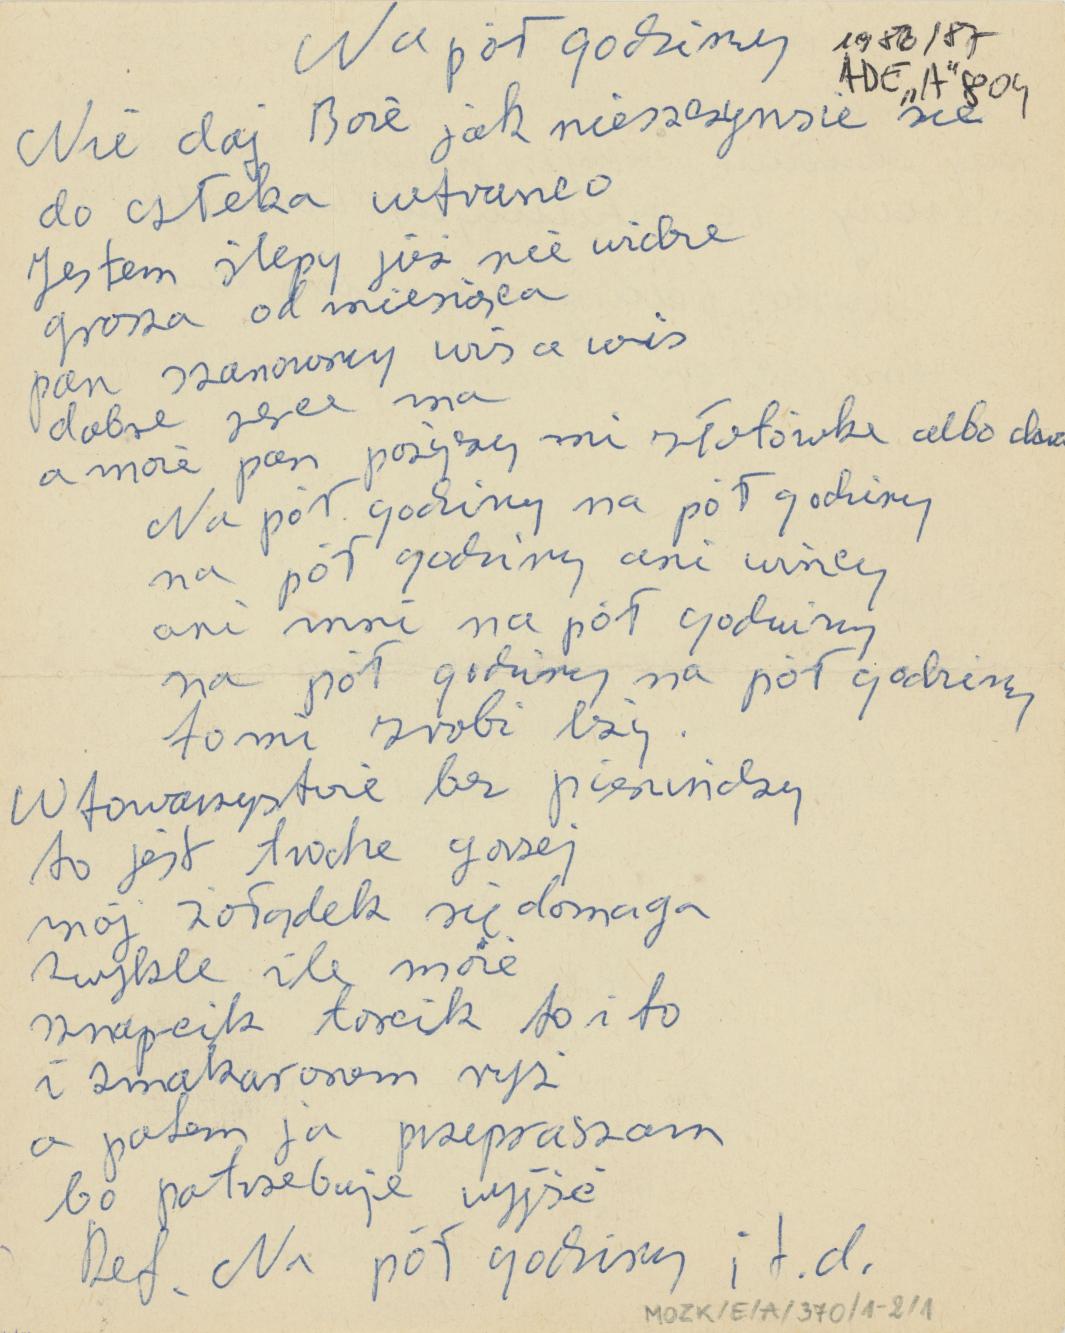 Na pół godziny
1986/87
ADE „A" 804
Nie daj Boże jak nieszczynsie sie
do człeka wtranco
Jestem ślepy już nie widze
grosza od miesiąca
pan szanowny wis a wis
dobre serce ma
a może pan pożyszy mi złotówke albo dwa
Na pół godziny na pół godziny
na pół godziny ani wincy
ani mni na pół godziny
na pół godziny na pół godziny
to mi zrobi lży.
W towarzystwie bez pienindzy
to jest troche gorzej
mój żołądek się domaga
zwykle ile może
sznapcik torcik to i to
i zmakaronem ryż
a potem ja przepraszam
bo potrzebuje wyjść
Ref. Na pół godziny i t.d.
MOZK/E/A/370/1-2/1